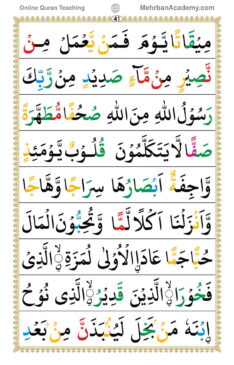 Online Quran Teaching MehrbanAcademy.com
41
مِيْقَاتًا يَّوْمَ فَمَنْ يَّعْمَلْ مِنْ
نَّصِيْرٍ مِنْ مَّآءٍ صَدِيْدٍ مِنْ رَّبِّكَ
رَسُوْلُ اللهِ مِنَ اللهِ صُحُفًا مُّطَهَّرَةً
صَفًّا لَّا يَتَكَلَّمُوْنَ قُلُوْبٌ يَّوْمَئِذٍ
وَّاجِفَةٌ اَبْصَارُهَا سِرَاجًا وَّهَّاجًا
وَّاَنْزَلْنَا اَكْلًا لَّمًّا وَّتُحِبُّوْنَ الْمَالَ
حُبًّا جَمًّا عَادَاۨ الْاُوْلٰى لُمَزَةِۨ الَّذِىْ
فَخُوْرَاۨ الَّذِيْنَ قَدِيْرُۨ الَّذِى نُوْحُ
ۨابْنَهٗ مَنْۢ بَخِلَ لَيُنْۢبَذَنَّ مِنْۢ بَعْدِ